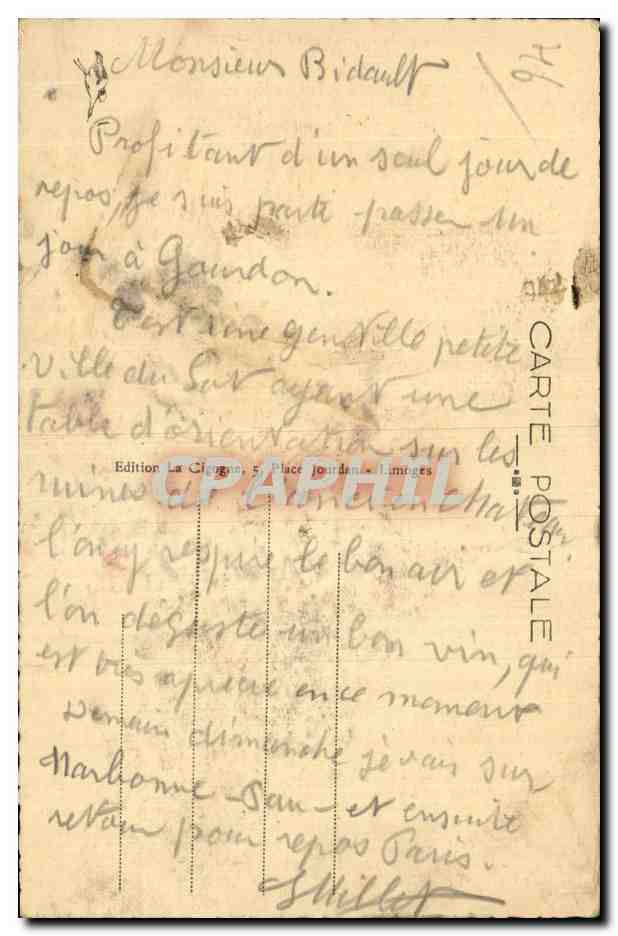 Monsieur Bidault
94
Profitant d'un seul jour de
repos, je suis parti passer un
jour à Gourdon.
C'est une gentille petite
Ville du Lot ayant une
table d'orientation sur les
Edition La Cigogne, 5, Place Jourdan - Limoges
ruines de l'ancien chateau.
CPAPHIL
l'on y respire le bon air et
l'on déguste un bon vin, qui
est très aprécié en ce moment
Demain dimanche je vais sur
Narbonne - Pau - et ensuite
retour pour repos Paris.
CARTE POSTALE